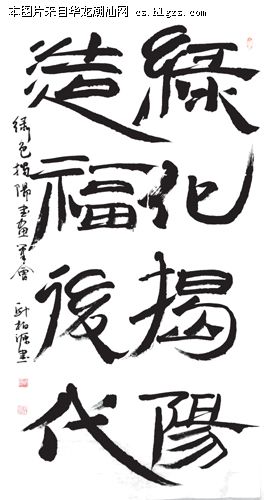 本图片来自华龙潮汕网 cs.hlgzs.com
綠化揭陽
造福後代
绿色揭陽书画笔會